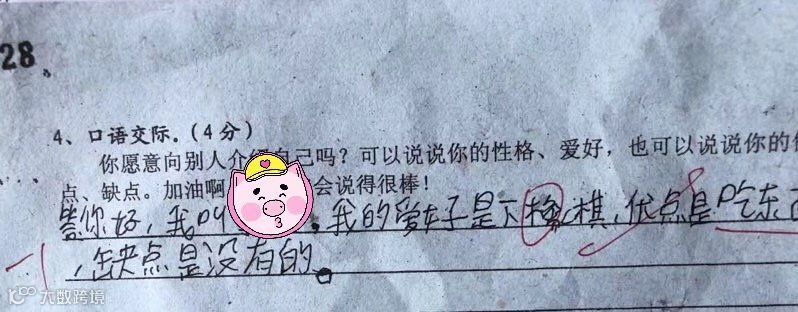 28、
4、口语交际。(4分)
你愿意向别人介绍自己吗？可以说说你的性格、爱好，也可以说说你的优
点、缺点。加油啊 会说得很棒！
你好，我叫 。我的爱好是下棋，优点是吃东
-1
，缺点是没有的。
大数跨境